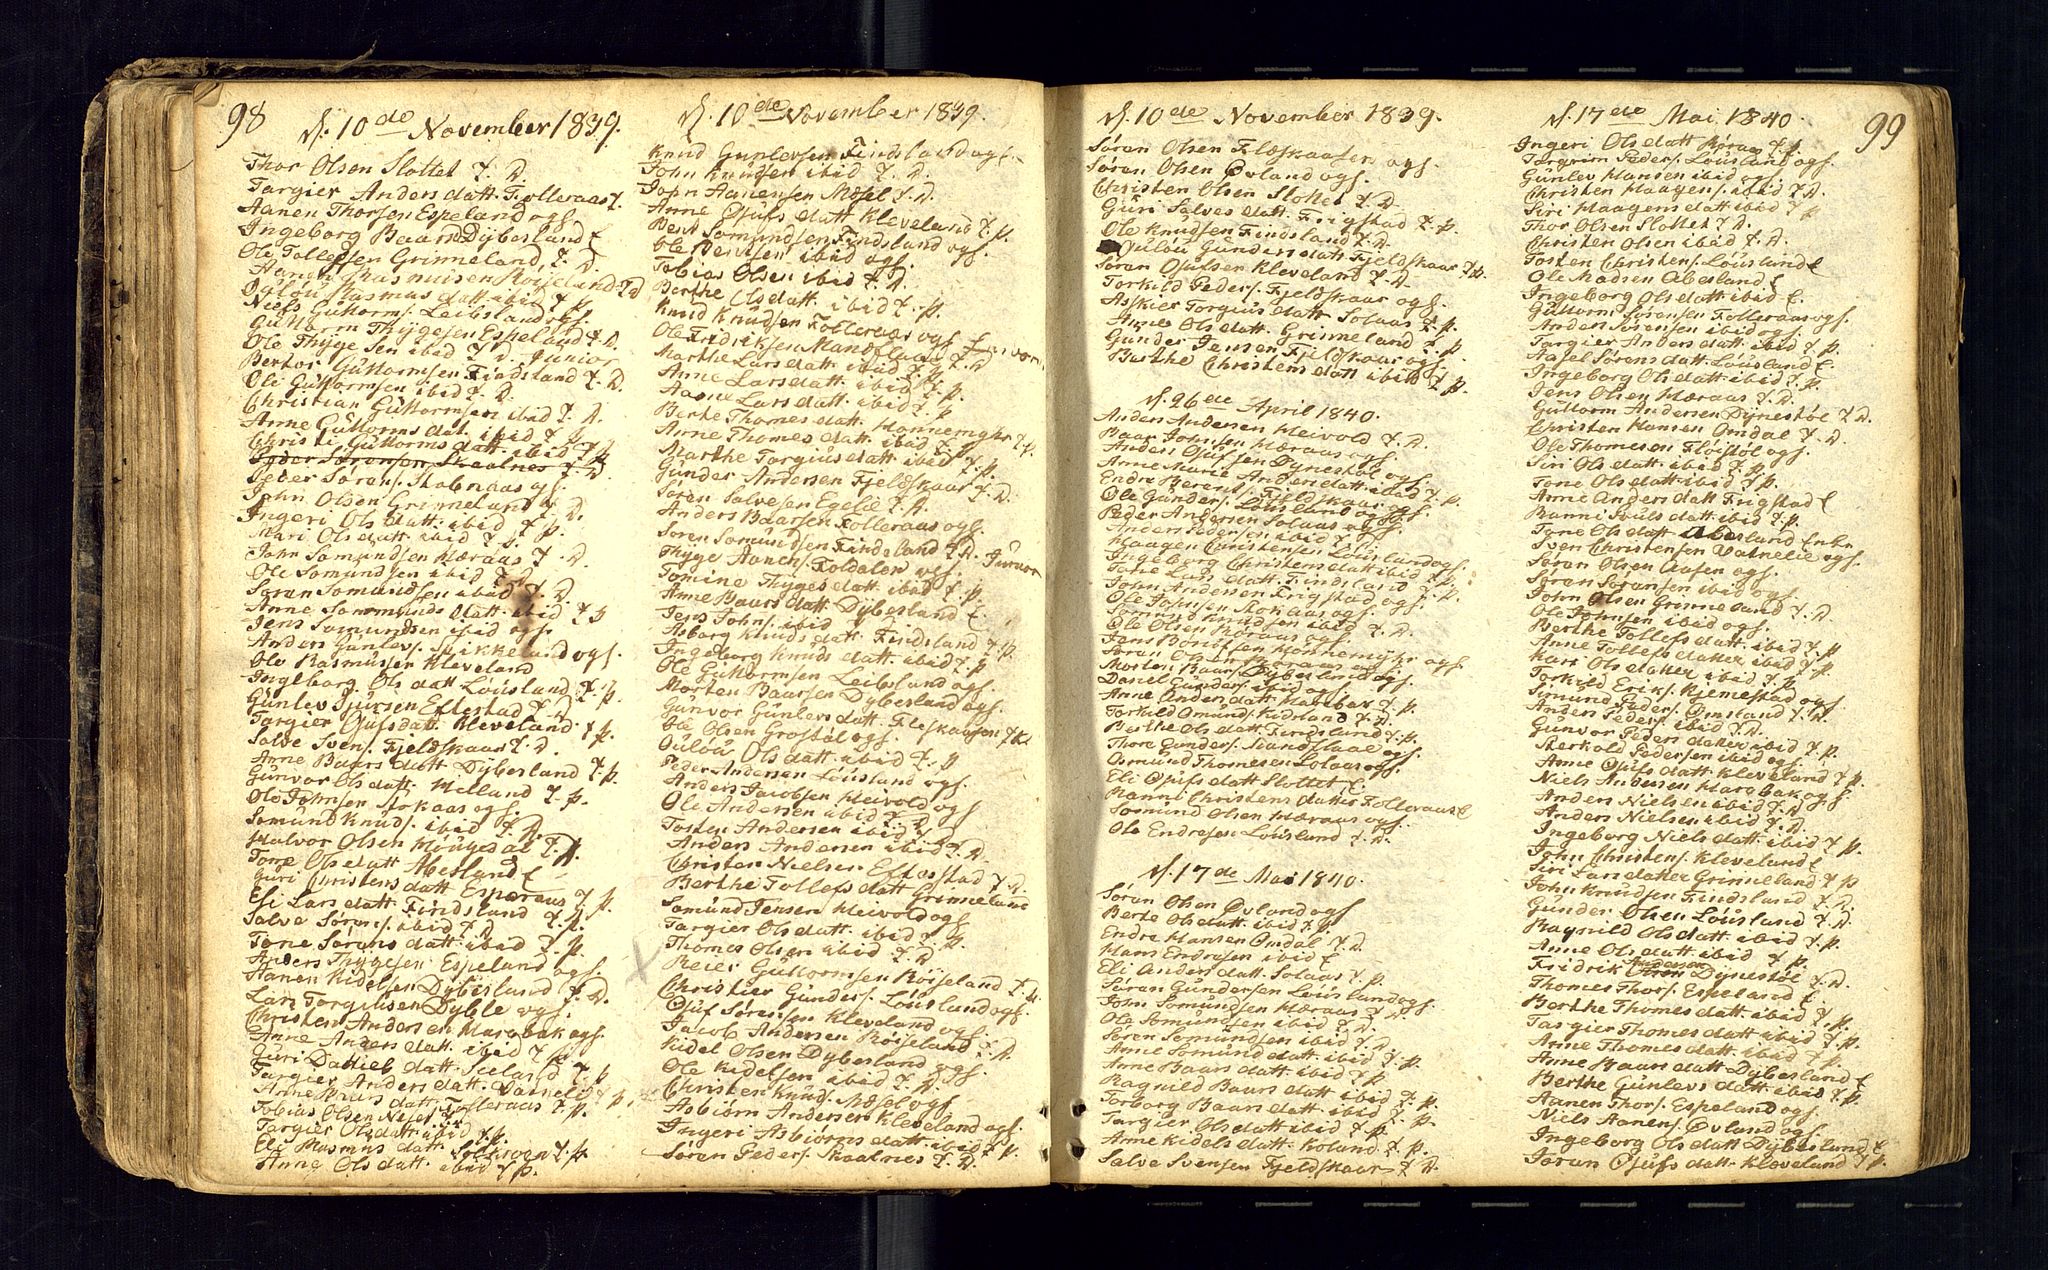 98
d. 10de November 1839.
Thor Olsen Slottet T. D.
Targier Anders datt. Folleraas T.
Aanen Thorsen Espeland ogs.
Ingeborg Baars Dybesland E
Ole Tollefsen Grimeland, T. D.
Rasmusen Røiseland T D
Rasmus datt. ibid T. p.
Niels Guttorms. Leibsland ogs.
Guttorm Thygesen Espeland T. D.
Ole Thygesen ibid T. D. Junior
Guttormsen Findsland T. D.
Ole Guttormsen ibid T. D.
Christian Guttormsen ibid T. D.
Anne Guttorms dat. ibid T. p.
Christi Guttorms datt. ibid T p
Peder Sørensen Skaalnes T. D
Peder Sørens. ogs.
John Olsen Grimeland T. D.
Ingeri Ols datt. ibid T. p.
Mari Ols datt. ibid T. p.
John Somundsen Hæraas T. D.
Ole Somundsen ibid T. D
Søren Somundsen ibid T. D.
Anne Sommunds datt. ibid T
Jens Somundsen ibid ogs.
Anders Gunlevs. ogs.
Ole Rasmusen Kleveland
Ingeborg Ols datt Løusland T. p.
Gunlev Sjursen Eftestad T. D
Targier Ojufsdatt. Kleveland T p.
Salve Svens. Fjeldskaar T. D.
Anne Baars datt Dybesland T. p.
Gunvor Ols datt. Helland T. p.
Ole Johnsen Stokaas ogs.
Somund Knuds. ibid T. D.
Halvor Olsen T. D.
Tore Ols datt Abesland E
Guri Christens datt T. p.
Eli Lars datt Findsland T. p.
Salve Sørens. ibid T. D
Tone Sørens datt. ibid T. p.
Anders Thygesen Espeland ogs.
Aanen Kidelsen Dybesland T. D.
Lars Torgiusen ogs.
Christen Andersen Harebak ogs.
Anne Anders datt. ibid T p
Guri datt T p
Targier Anders datt. T. p.
Anne datt. Folleraas T. p.
Tobias Olsen
Targier Ols datt. ibid T. p.
Eli Rasmus datt T. p.
Anne Ols datt. ibid T p.
d. 10de November 1839.
Knud Gunlevsen Findsland ogs.
John Knudsen ibid T. D.
John Aanensen Mæsel T. D.
Anne Ojufs datt Kleveland T. p.
Bent Somundsen Findsland ogs.
Ole Bentsen ibid ogs.
Tobias Olsen ibid T. D.
Berthe Ols datt. ibid T. p.
Knud Knudsen Folleraas ogs
Ole Fridriksen Mandflaae T. D
Marthe Lars datt. ibid T. p
Anne Lars datt. ibid T. p.
Aasne Lars datt. ibid T. p
Berthe Thomes datt. Honnemyhr T. p.
Anne Thomes datt. ibid T. p.
Marthe Targius datt. ibid T. p.
Gunder Andersen Fjeldskaar T. D.
Søren Salvesen Egelie T. D.
Anders Baarsen Folleraas ogs.
Søren Somundsen Findsland T. D. Junior
Thyge Aanens. Foldalen ogs.
Tomine Thyges datt. ibid T. p.
Anne Baars datt. Dybesland E.
Jens Johns. ibid T. D.
Asborg Knuds datt. Findsland T. p.
Ingeborg Knuds datt. ibid T. p
Ole Guttormsen Leibsland ogs.
Morten Baarsen Dybesland ogs.
Gunvor Gunlevs datt. T. p.
Ole Olsen ogs.
Oulou Ols datt. ibid T. p
Peder Andersen Løusland ogs.
Anders Jacobsen Heivold ogs
Ole Andersen ibid T. D
Tosten Andersen ibid T. D
Anders Andersen ibid T. D.
Christen Nielsen Eftestad T. D.
Berthe Tollefs datt Grimeland
Somund Jensen Heivold ogs
Targier Ols datt. ibid T. p.
Thomes Olsen ibid T. D
Guttormsen Røiseland T. D.
Christier Gunders. Løusland ogs.
Ojuf Sørensen Kleveland ogs.
Jacob Andersen Røiseland T. D.
Kidel Olsen Dybesland ogs.
Ole Kidelsen ibid T. D.
Christen Knuds. Mæsel ogs
Asbiørn Andersen Kleveland ogs.
Ingeri Asbiørns datt. ibid T. p.
Søren Peders. Skaalnes T. D.
d. 10de November 1839.
Søren Olsen ogs.
Søren Olsen Øvland ogs.
Christen Olsen Slottet T. D.
Guri Salves datt. Frigstad T. p.
Ole Knudsen Findsland T. D.
Gunders datt. Fjeldskaar T. p.
Søren Ojufsen Kleveland T. D.
Torkild Peders. Fjeldskaar ogs.
Targius datt. Solaas T. p.
Anne Ols datt. Grimeland T. p.
Gunder Jensen Fjeldskaar ogs.
Berthe Christens datt ibid T. p.
d. 26de April 1840.
Anders Andersen Heivold T. D.
Baar Johnsen Hæraas ogs.
Anders Ojufsen Dynestøl ogs.
Anne Marie Anders datt. ibid T. p.
Endre Berents. Fjeldskaar ogs.
Ole Gunders. Løusland ogs.
Peder Andersen Solaas ogs.
Anders Pedersen ibid T. D.
Haagen Christensen Løusland ogs.
Ingeborg Christens datt ibid T. p.
Tone Lars datt. Findsland T. p.
John Andersen Frigstad ogs.
Ole Johnsen Stokaas ogs.
Somund Knudsen ibid T. D.
Ole Olsen ogs.
Honnemyhr ogs.
Søren Olsen Hæraas ogs
Morten Baars. Dybesland ogs.
Daniel Gunders. ibid ogs.
Anne Anders datt Harebak T. p.
Torkild Omunds. T. D.
Berthe Ols datt. Findsland T. p.
Thore Gunders. Mandflaae ogs.
Osmund Thomesen Solaas ogs.
Eli Ojufs datt Slottet E.
Ranni Christens datter Folleraas E
Somund Olsen Hæraas ogs.
Ole Endresen Løusland T. D.
d. 17de Mai 1840.
Søren Olsen Øvland ogs
Berte Ols datt. ibid T. p.
Endre Hansen Omdal T. D.
Hans Endresen ibid E
Eli Anders datt. Solaas T p.
Søren Gundersen Løusland ogs.
John Somundsen Hæraas T D
Ole Somundsen ibid T. D
Søren Somundsen ibid T. D.
Anne Somund datt. ibid T. p.
Anne Baars datt ibid T. p.
Ragnild Baars datt ibid T. p.
Torborg Baars datt. ibid T. p.
Targier Ols datt. ibid T. p.
Anne Kidels datt. Koland T. p.
Salve Svensen Fjeldskaar T. D.
99
d. 17de Mai 1840.
Ingeri Ols datt T. p.
Torgrim Peders. Løusland ogs.
Gunlev Hansen ibid ogs.
Christen Haagens. ibid T. D.
Siri Haagens datt ibid T p
Thor Olsen Slottet T. D.
Christen Olsen ibid T. D.
Tosten Christens. Løusland E
Ole Madsen Abesland E
Ingeborg Ols datt ibid E.
Guttorm Sørensen Folleraas ogs.
Anders Sørensen ibid ogs.
Targier Anders datt. ibid T. p.
Aasel Sørens datt. Løusland E.
Ingeborg Ols datt. ibid T. p.
Jens Olsen Hæraas T. D.
Guttorm Andersen Dynestøl T. D.
Christen Hansen Omdal T. D.
Ole Thomesen Fløistøl ogs.
Siri Ols datt. ibid T. p.
Tone Ols datt. ibid T. p.
Anne Anders datt Frigstad E
Ranni datt ibid T. p.
Tone Ols datt. Abesland
Sven Christensen Vatnelie ogs.
Søren Olsen Aasen ogs.
Søren Sørensen ibid ogs.
John Olsen Grimeland T. D.
Ole Johnsen ibid ogs.
Berthe Tollefs datt. ibid T. p.
Anne Tollefs datter ibid T. p.
Kari Ols datter ibid T. p.
Torkild Eriks. Kjemestad ogs.
Somund Peders. T. D.
Anders Peders. ibid T. D.
Gunvor Peders datter ibid T. p.
Pedersen ibid ogs.
Anne Ojufs datt. Kleveland T. p.
Niels Andersen Harebak ogs.
Anders Nielsen ibid T. D.
Ingeborg Niels datt. ibid T. p.
John Christens. Kleveland E
Siri Lars datter Grimeland T p
John Knudsen Findsland T. D.
Gunder Olsen Løusland T. D.
Ragnild Ols datt. ibid T. p.
Anne Ols datt. ibid T. p.
Fridrik Andersen Dynestøl T. D.
Thomes Thors. Espeland E.
Berthe Thomes datt ibid T. p.
Targier Thomes datt ibid T. p.
Anne Thomes datt. ibid T. p.
Anne Baars datt. Dybesland E
Berthe Gunlevs datt. ibid T. p.
Aanen Thors. Espeland ogs.
Niels Aanens. Øvland ogs.
Ingeborg Ols datt Dybesland E
Søran Ojufs datt. Kleveland T p.